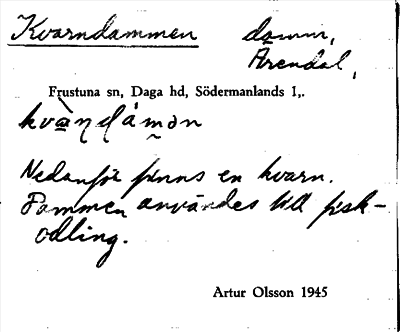 Kvarndammen damm,
Ärendal,
Frustuna sn, Daga hd, Södermanlands l,.
Nedanför finns en kvarn.
Dammen användes till fisk-
odling.
Artur Olsson 1945